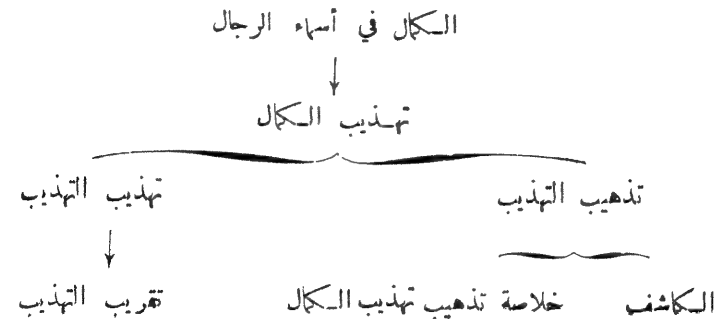 الكمال في أسماء الرجال
تهذيب الكمال
تذهيب التهذيب
تهذيب التهذيب
الكاشف
خلاصة تذهيب تهذيب الكمال
تقريب التهذيب